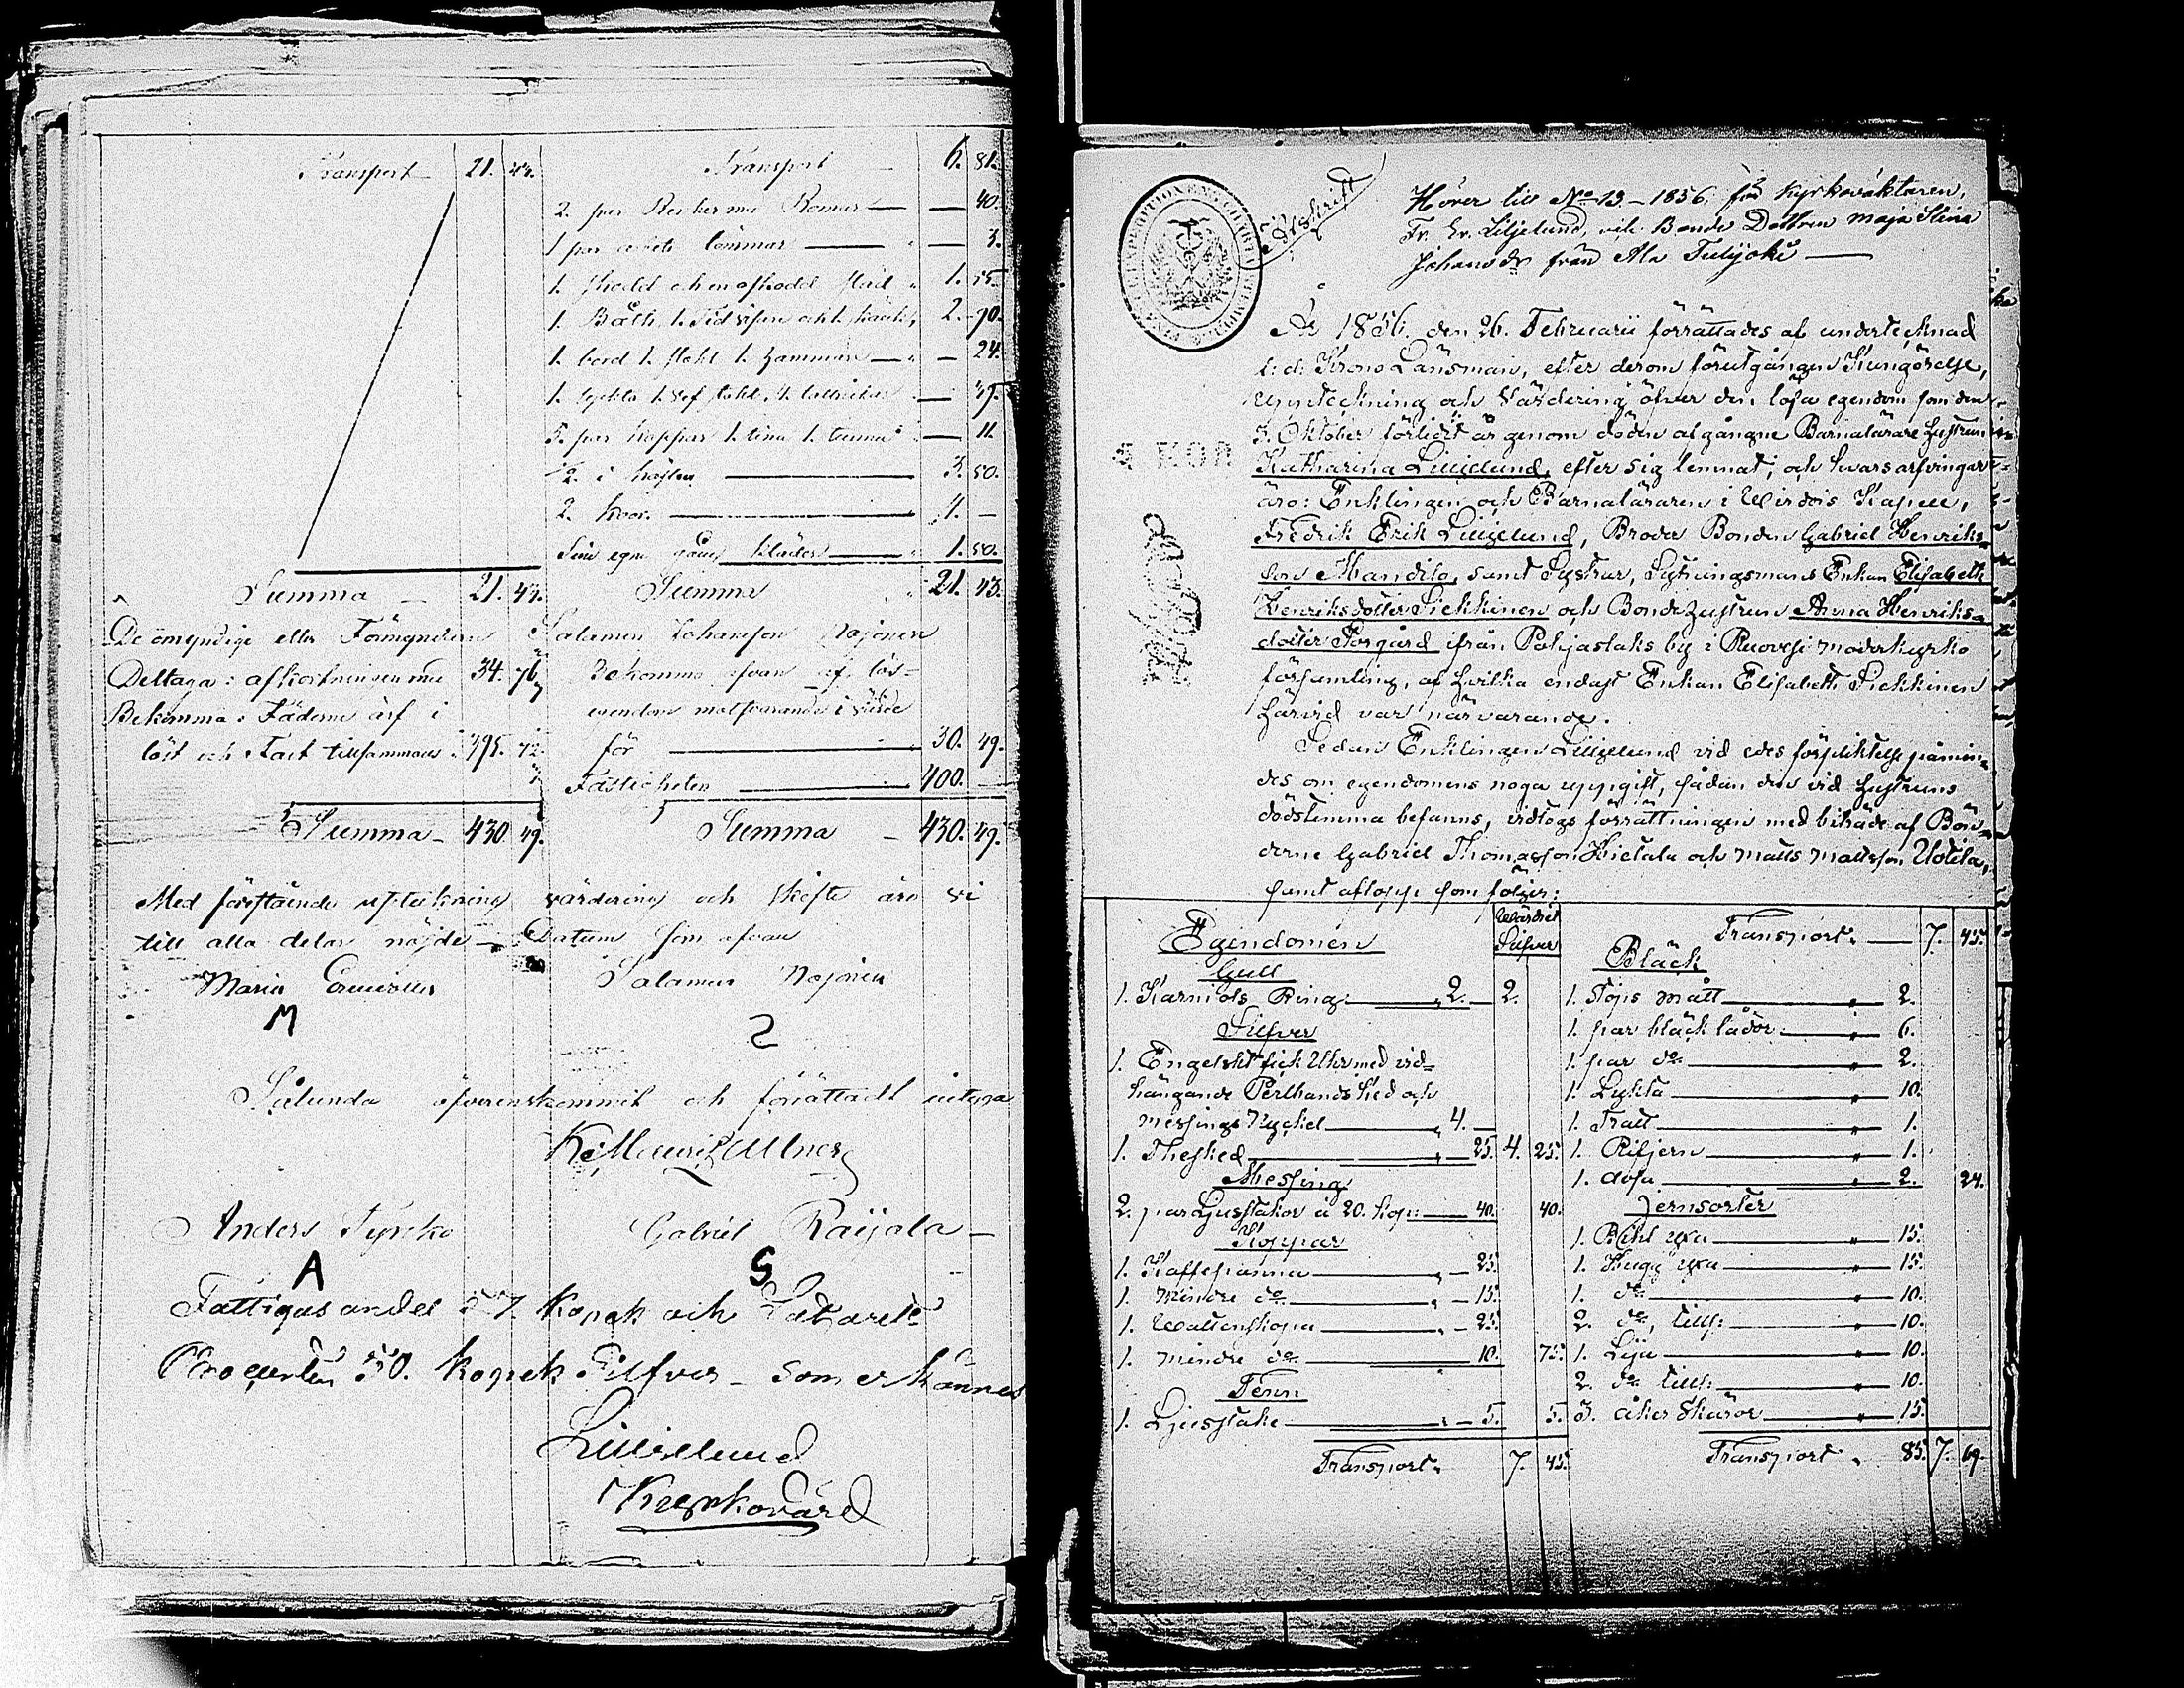 Transport 21. 44.
Summa 21. 44.
De omyndige eller Förmyndaren
Deltaga i afkortningen med 34. 76
Bekomma: Fäderne arf i
löst och Fast tillsammans 395. 72.
Summa 430. 49.
Transport 6. 81.
2. par 40.
1 par arbets lommar 3.
1. skodd och en oskodd släd 1. 55.
1. Båth, 2. 90.
1. bord 1. stohl 1. hammare 24.
1. lyckta 1. väf stohl, 4. 47.
5. par koppar 1. tina 1. tunna 11.
1/2 i hästen 3. 50.
2. kor 4. —
Sin egna gång kläder 1. 50.
Summa 21. 43.
Salamon Johansson Nojonen
Bekomma ofvan af lös-
egendom motsvarande i värde
för 30. 49.
Fastigheten 400.
Summa 430. 49.
Med förestående upteckning värdering och skifte äro vi
till alla delar nöjde Datum som ofvan
Maria
M
Salamon Nojonen
S
Sålunda öfverenskommit och förrättadt intyga
Anders Tyrcko
A
Gabriel Raijala
G
Fattigas andel 57. Kopek och Lazarets
Procenten 50. Kopek Silfver — som erkännes
Lilljelund
Kyrkovärd
Afskrift
Hörer till No 13 – 1856. för Kyrkovaktaren,
Fr. Er. Liljelund, och Bonde Dottren Maja Stina
Johansdr från Ala Tulijoki
År 1856. den 26. Februarii förrättades af undertecknad
t: d: Krono Länsman, efter derom förutgången Kungörelse,
uppteckning och Värdering öfver den lösa egendom som den
3. Oktober förlidit år genom döden afgångne Barnalärare hustrun
Katharina Lilljelund, efter sig lemnat, och hvars arfvingar
äro: Enklingen och Barnaläraren i Wirdois Kapell,
Fredrik Erik Lilljelund, Broder Bonden Gabriel Henriks-
son Mandila, samt Systrar, Sytningsmans Enkan Elisabeth
Henriksdotter Siekkinen och Bondehustrun Anna Henriks-
dotter Borgård ifrån Pohjaslaks by i Ruovesi moderkyrko
församling, af hvilka endast Enkan Elisabeth Siekkinen
härvid var närvarande.
Sedan Enklingen Lilljelund vid edes förpliktelse påmin-
des om egendomens noga uppgift, sådan den vid hustruns
dödstimma befanns, vidtogs förrättningen med biträde af Bön-
derne Gabriel Thomasson Hietala och Matts Mattsson Uotila,
samt aflopp som följer:
Egendomen Wärdiet Silfver
Gull
1. Karniols Ring 2. — 2.
Silfver
1. Engelskt fick Uhr med vid-
hängande Perlbands Ked och
messings Nyckel 4. —
1. Thesked 25. 4. 25.
Messing
2. par Ljusstakor à 20. kop: 40. 40.
Koppar
1. Kaffepanna 25.
1. Mindre do 15.
1. Wattenskopa 25.
1. Mindre do 10. 75.
Tenn
1. Ljusstake 5. 5.
Transport 7. 45.
Transport 7. 45.
Bläck
1. stops mått 2.
1. par bläck lådor 6.
1. par do 2.
1. Lykta 10.
1. Tratt 1.
1. Rifjern 1.
1. dosa 2. 24.
Jernsorter
1. Bihl yxa 15.
1. Hugg yxa 15.
1. do 10.
2. do, tills: 10.
1. Lija 10.
2. do tills: 10.
3. åker skäror 15.
Transport 85. 7. 69.